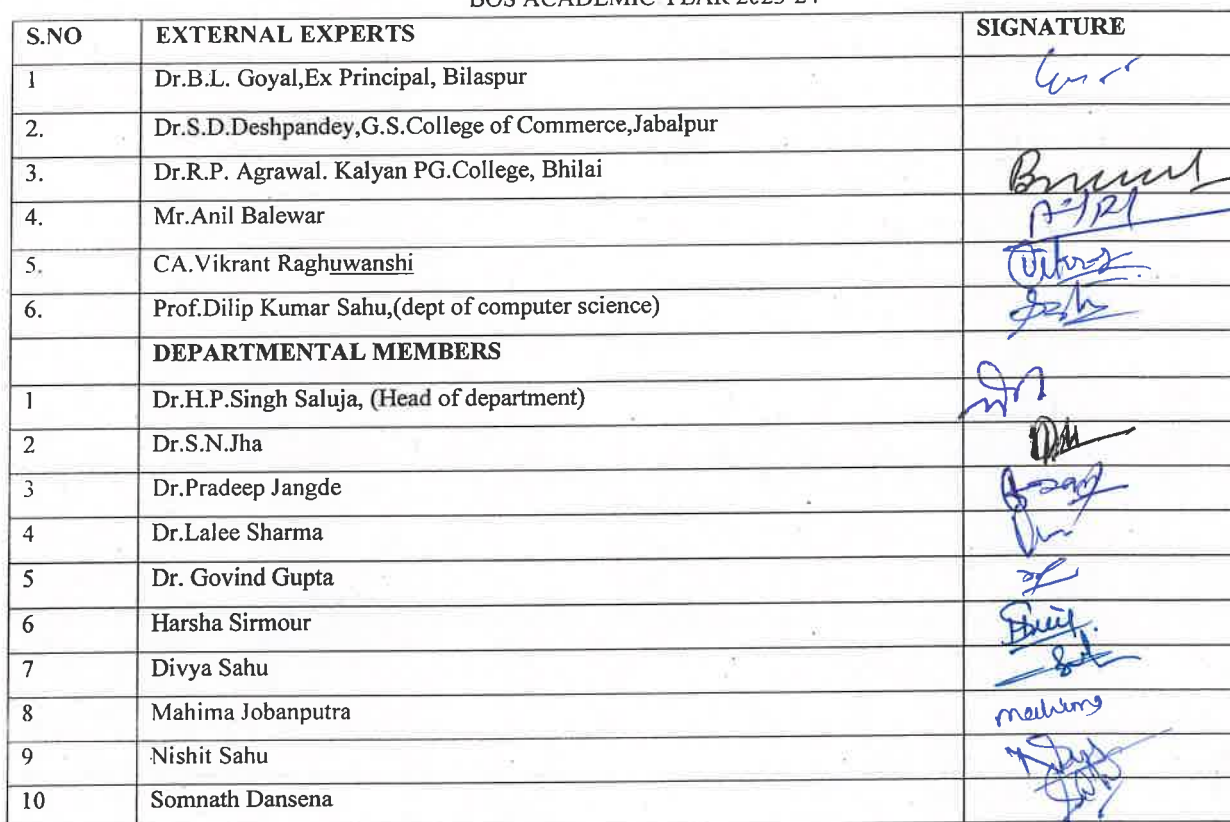 BOS ACADEMIC YEAR 2023-24
S.NO EXTERNAL EXPERTS SIGNATURE
1 Dr.B.L. Goyal,Ex Principal, Bilaspur
2. Dr.S.D.Deshpandey,G.S.College of Commerce,Jabalpur
3. Dr.R.P. Agrawal. Kalyan PG.College, Bhilai
4. Mr.Anil Balewar
5. CA.Vikrant Raghuwanshi
6. Prof.Dilip Kumar Sahu,(dept of computer science)
DEPARTMENTAL MEMBERS
1 Dr.H.P.Singh Saluja, (Head of department)
2 Dr.S.N.Jha
3 Dr.Pradeep Jangde
4 Dr.Lalee Sharma
5 Dr. Govind Gupta
6 Harsha Sirmour
7 Divya Sahu
8 Mahima Jobanputra mahima
9 Nishit Sahu
10 Somnath Dansena